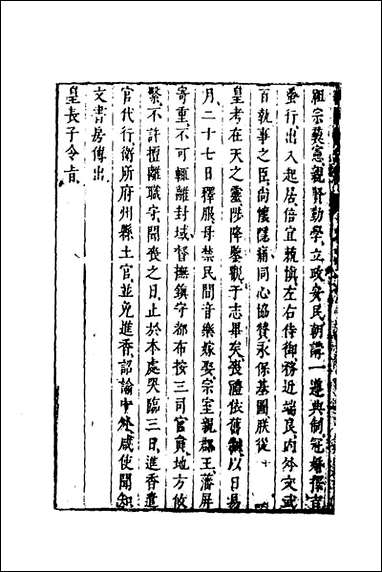 祖宗彜憲親賢勤學立政安民朝講一遵典制冠婚擇吉
蚤行出入起居倍宜兢慎左右侍御務近端良内外文武
百執事之臣尚懷隱痛同心協賛永保基圖朕從
皇考在天之靈陟降鑒觀于志畢矣喪禮依舊制以日易
月二十七日釋服毋禁民間音樂嫁娶宗室親郡王藩屏
寄重不可輒離封域督撫鎮守都布按三司官員地方攸
繫不許擅離職守聞喪之日止於本處哭臨三日進香遣
官代行衛所府州縣土官並免進香詔諭中外咸使聞知
文書房傳出
皇長子令旨